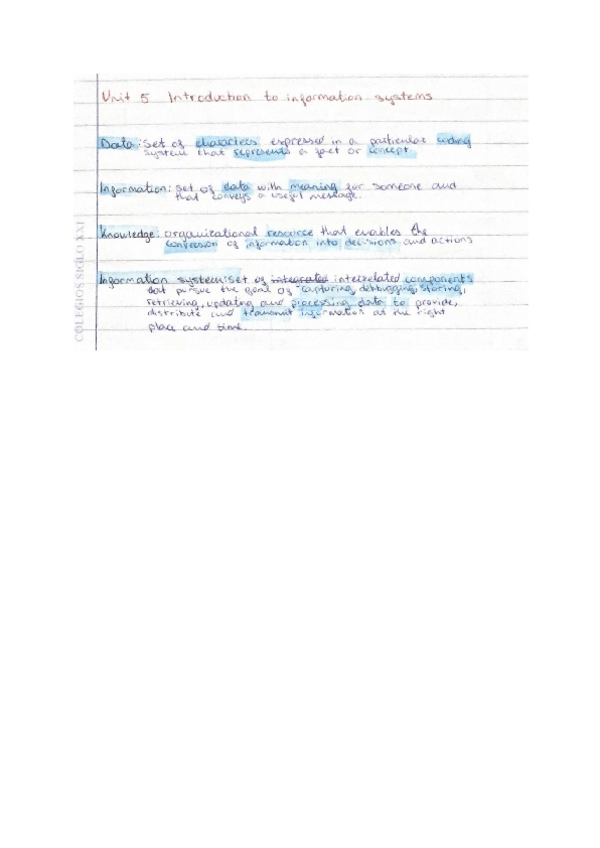 Unit 5 Introduction to information systems
Data: set of characters expressed in a particular coding
system that represents a fact or concept.
Information: set of data with meaning for someone and
that conveys a useful message.
Knowledge: organizational resource that enables the
conversion of information into decisions and actions
Information system: set of integrated interrelated components
that pursue the goal of capturing, debugging, storing,
retrieving, updating and processing data to provide,
distribute and transmit information at the right
place and time.
COLEGIOS SIGLO XXI